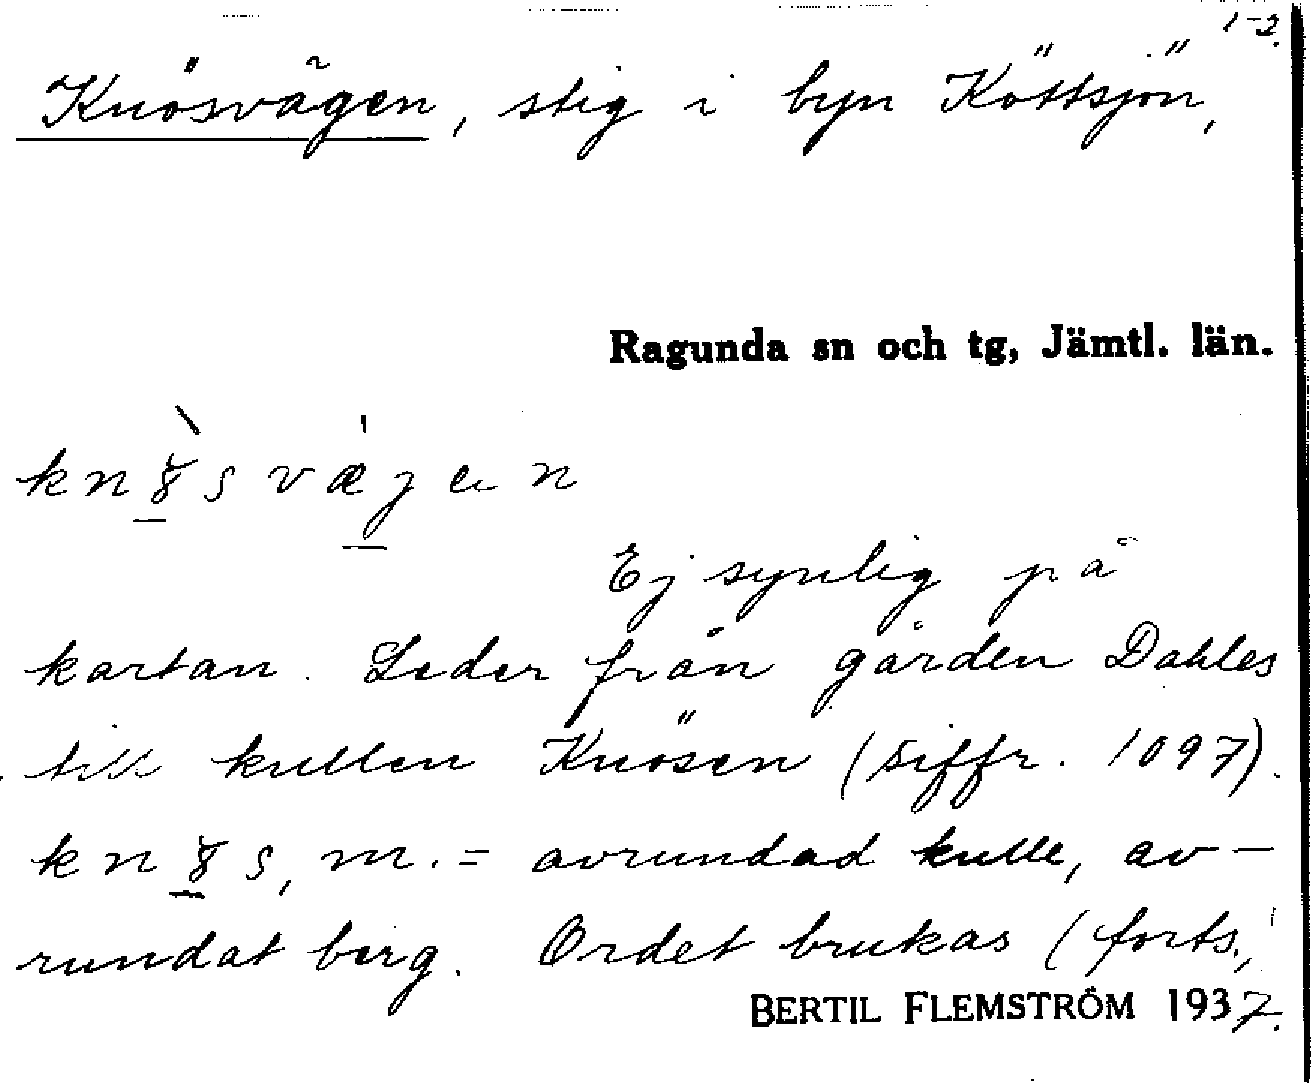 1-2.
Knösvägen, stig i byn Köttsjön,
Ragunda sn och tg, Jämtl. län.
Ej synlig på
kartan. Leder från gården Dahles
till kullen Knösen (siffr. 1097).
m. = avrundad kulle, av-
rundat berg. Ordet brukas (forts.,
BERTIL FLEMSTRÖM 1937.